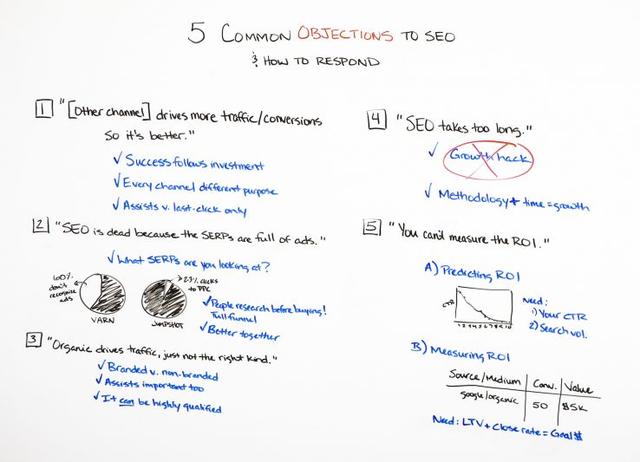 5 COMMON OBJECTIONS TO SEO
& HOW TO RESPOND
1 "[Other channel] drives more traffic/conversions
so it's better."
✓ Success follows investment
✓ Every channel different purpose
✓ Assists v. last-click only
2 "SEO is dead because the SERPs are full of ads."
✓ What SERPs are you looking at?
60%
don't
recognize
ads
VARN
>2-3% clicks
to PPC
JUMPSHOT
✓ People research before buying!
Full funnel
✓ Better together
3 "Organic drives traffic, just not the right kind."
✓ Branded v. non-branded
✓ Assists important too
✓ It can be highly qualified
4 "SEO takes too long."
✓ Growth hack
✓ Methodology + time = growth
5 "You can't measure the ROI."
A) Predicting ROI
CTR
1 2 3 4 5 6 7 8 9 10
Need:
1) Your CTR
2) Search vol.
B) Measuring ROI
Source/Medium Conv. Value
google/organic 50 $5K
Need: LTV + Close rate = Goal $